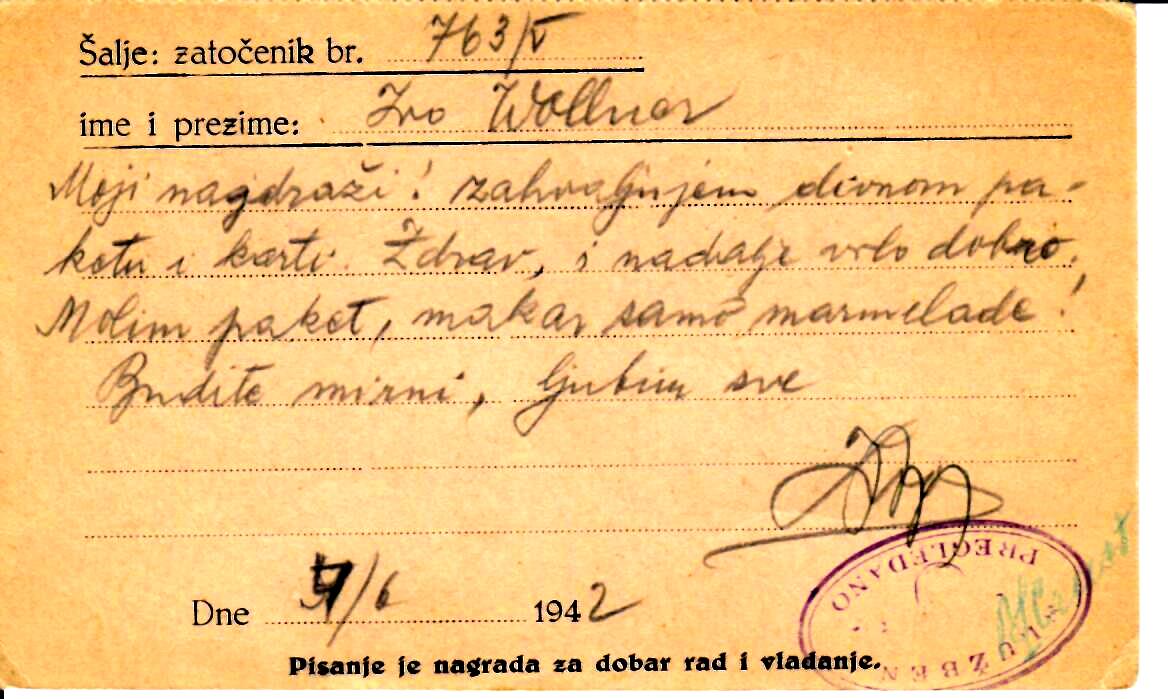 Šalje: zatočenik br. 763/V
ime i prezime: Ivo Wollner
Moji najdraži! zahvaljujem divnom pa-
ketu i karti. Zdrav, i nadalje vrlo dobro.
Molim paket, makar samo marmelade!
Budite mirni, ljubim sve
Ivo
Dne /6 1942
PREGLEDANO
SLUŽBENO
Pisanje je nagrada za dobar rad i vladanje.